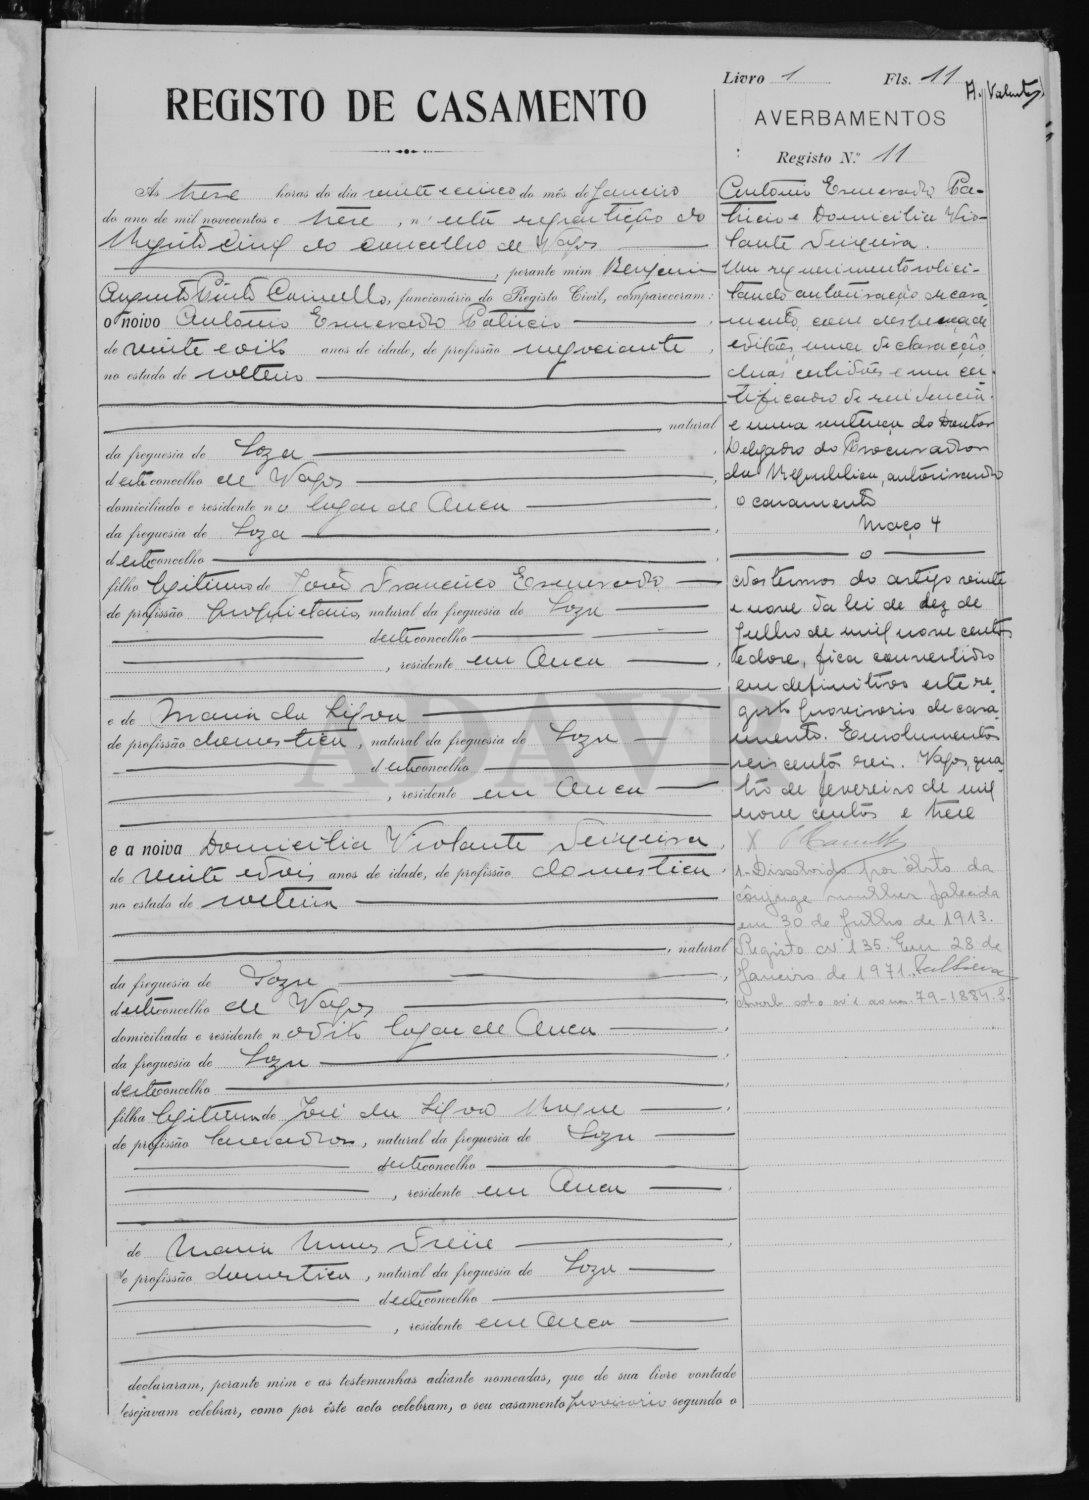 Livro 1 Fls. 11
REGISTO DE CASAMENTO
Ás treze horas do dia vinte e cinco do mês de Janeiro
do ano de mil novecentos e treze, n'esta repartição do
Registo Civil do concelho de Vagos
, perante mim Benjamim
Augusto Pinto Camello, funcionário do Registo Civil, compareceram:
o noivo António Esmerado Patricio
de vinte e oito anos de idade, de profissão negociante,
no estado de solteiro
, natural
da freguesia de Soza
d este concelho de Vagos
domiciliado e residente no lugar de Ouca
da freguesia de Soza
d este concelho
filho legitimo de José Francisco Esmerado
de profissão proprietario, natural da freguesia de Soza
deste concelho
, residente em Ouca
e de Maria da Silva
de profissão domestica, natural da freguesia de Soza
deste concelho
, residente em Ouca
e a noiva Domicilia Violante Sequeira,
de vinte e dois anos de idade, de profissão domestica,
no estado de solteira
, natural
da freguesia de Soza
deste concelho de Vagos
domiciliada e residente no dito lugar de Ouca
da freguesia de Soza
deste concelho
filha legitima de José da Silva
de profissão lavrador, natural da freguesia de Soza
deste concelho
, residente em Ouca
de Maria Nunes Freire
de profissão domestica, natural da freguesia de Soza
deste concelho
, residente em Ouca
declararam, perante mim e as testemunhas adiante nomeadas, que de sua livre vontade
desejavam celebrar, como por êste acto celebram, o seu casamento provisorio segundo o
AVERBAMENTOS
Registo N.º 11
António Esmerado Pa-
tricio e Domicilia Vio-
lante Sequeira.
Um requerimento solici-
tando autorisação de casa-
mento, com despensa de
editaes, uma declaração,
duas certidões e um cer-
tificado de residencia
e uma sentença do Doutor
Delegado do Procurador
da Republica, autorisando
o casamento
Maço 4
Nos termos do artigo vinte
e nove da lei de dez de
Julho de mil nove centos
e doze, fica convertido
em definitivo este re-
gisto provisorio de casa-
mento. Emolumentos
seis centos reis. Vagos, qua-
tro de fevereiro de mil
nove centos e treze
1- Dissolvido por óbito da
cônjuge mulher falecida
em 30 de Julho de 1913.
Registo nº 135. Em 28 de
Janeiro de 1971.
ADAVR